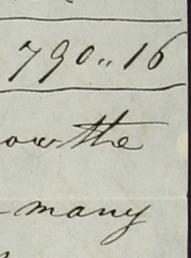 790.. 16
ow the
many